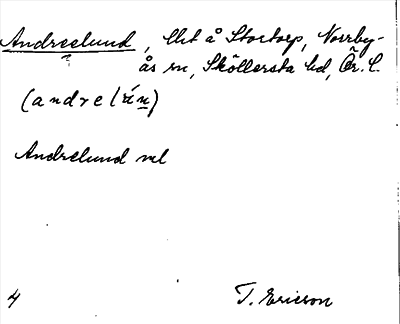 Andreelund, lht å Stortorp, Norrby-
ås sn, Sköllersta hd, Ör. l.
(andrelún)
Andrelund nel
4 T. Ericson